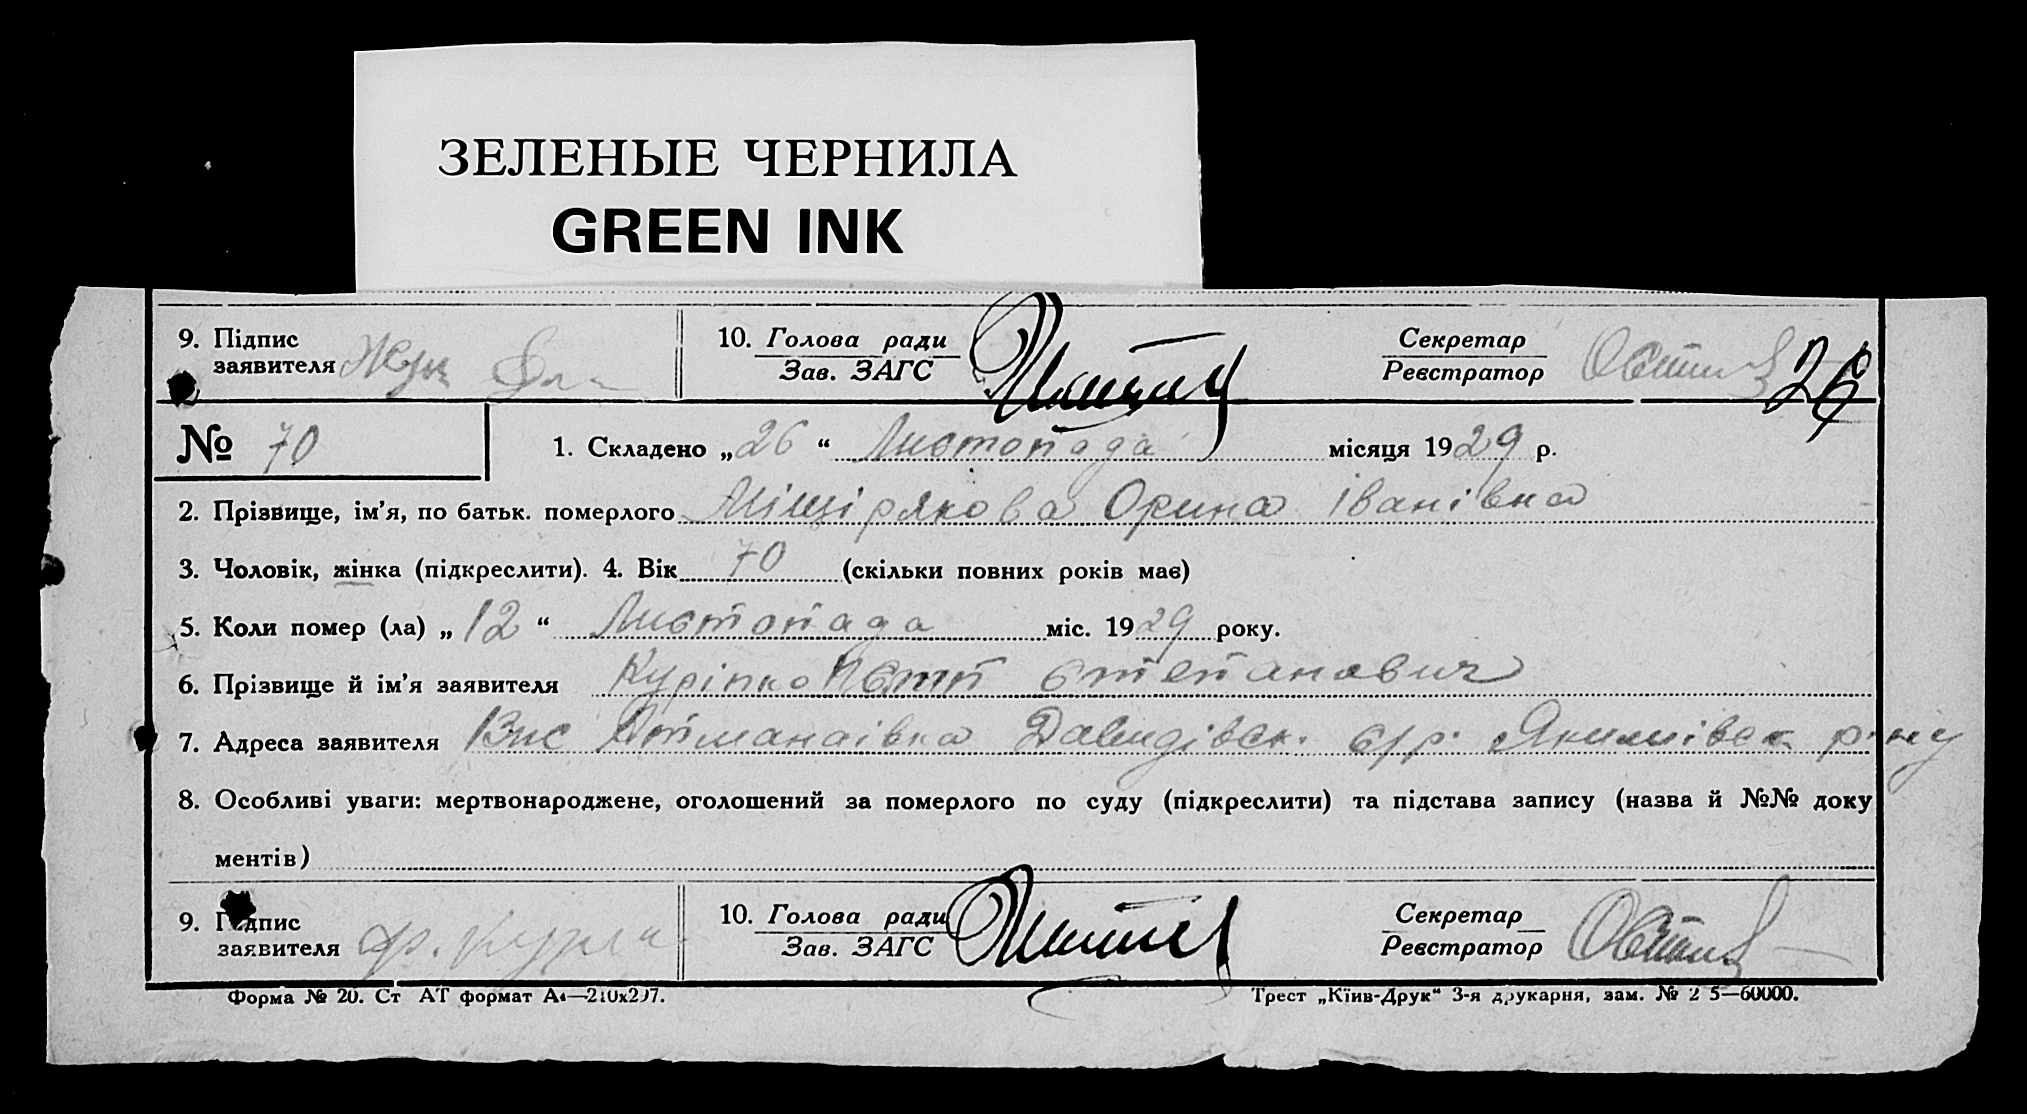 ЗЕЛЕНЫЕ ЧЕРНИЛА
GREEN INK
9. Підпис заявителя
10. Голова ради Зав. ЗАГС
Секретар Реєстратор
26
№ 70
1. Складено „26“ Листопада місяця 1929 р.
2. Прізвище, ім'я, по батьк. померлого Міщірякова Орина Іванівна
3. Чоловік, жінка (підкреслити). 4. Вік 70 (скільки повних років має)
5. Коли помер (ла) „12“ Листопада міс. 1929 року.
6. Прізвище й ім'я заявителя Куріпко Степанович
7. Адреса заявителя Давидівск. с/р. Якимівск р-ну
8. Особливі уваги: мертвонароджене, оголошений за померлого по суду (підкреслити) та підстава запису (назва й №№ доку
ментів)
9. Підпис заявителя
10. Голова ради Зав. ЗАГС
Секретар Реєстратор
Форма № 20. Ст АТ формат А4—210х297.
Трест „Київ-Друк“ 3-я друкарня, зам. № 2 5—60000.